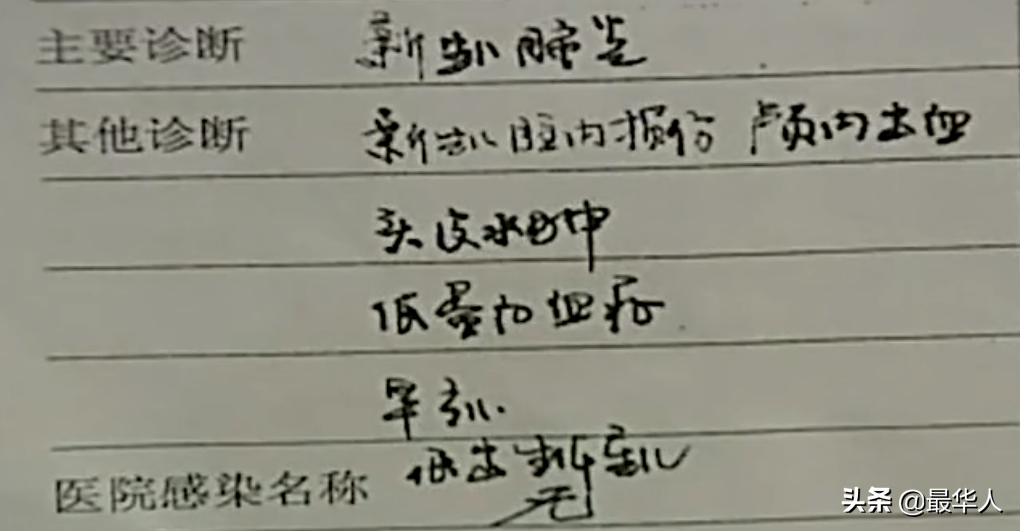 主要诊断 新生儿肺炎
其他诊断 新生儿颅内损伤 颅内出血
头皮水肿
低蛋白血症
早产儿
低出生体重儿
医院感染名称 无
头条 @最华人